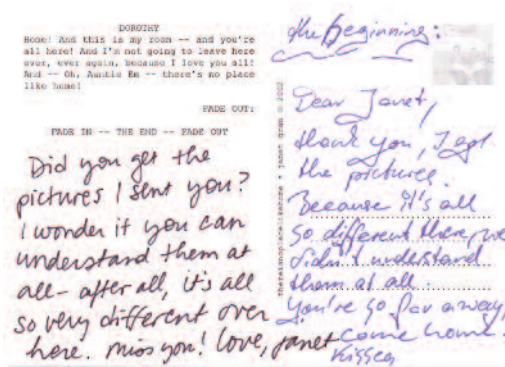 DOROTHY
Home! And this is my room -- and you're
all here! And I'm not going to leave here
ever, ever again, because I love you all!
And -- Oh, Auntie Em -- there's no place
like home!
FADE OUT:
FADE IN -- THE END -- FADE OUT
Did you get the
pictures I sent you?
I wonder if you can
understand them at
all - after all, it's all
so very different over
here. miss you! love, janet
thereisnoplacelikehome • janet gram © 2002
the beginning:
Dear Janet,
thank you, I got
the pictures.
Because it's all
so different there, we
didn't understand
them at all.
You're so far away,
come home.
Kisses